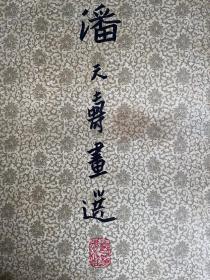 潘天壽畫選